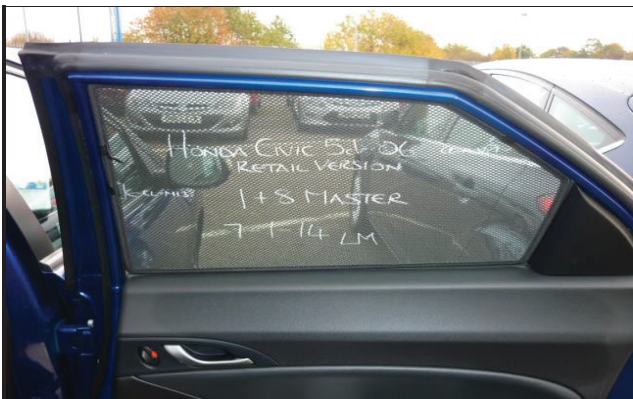 HONDA CIVIC 5d 06
RETAIL VERSION
1+8 MASTER
7-1-14 LM